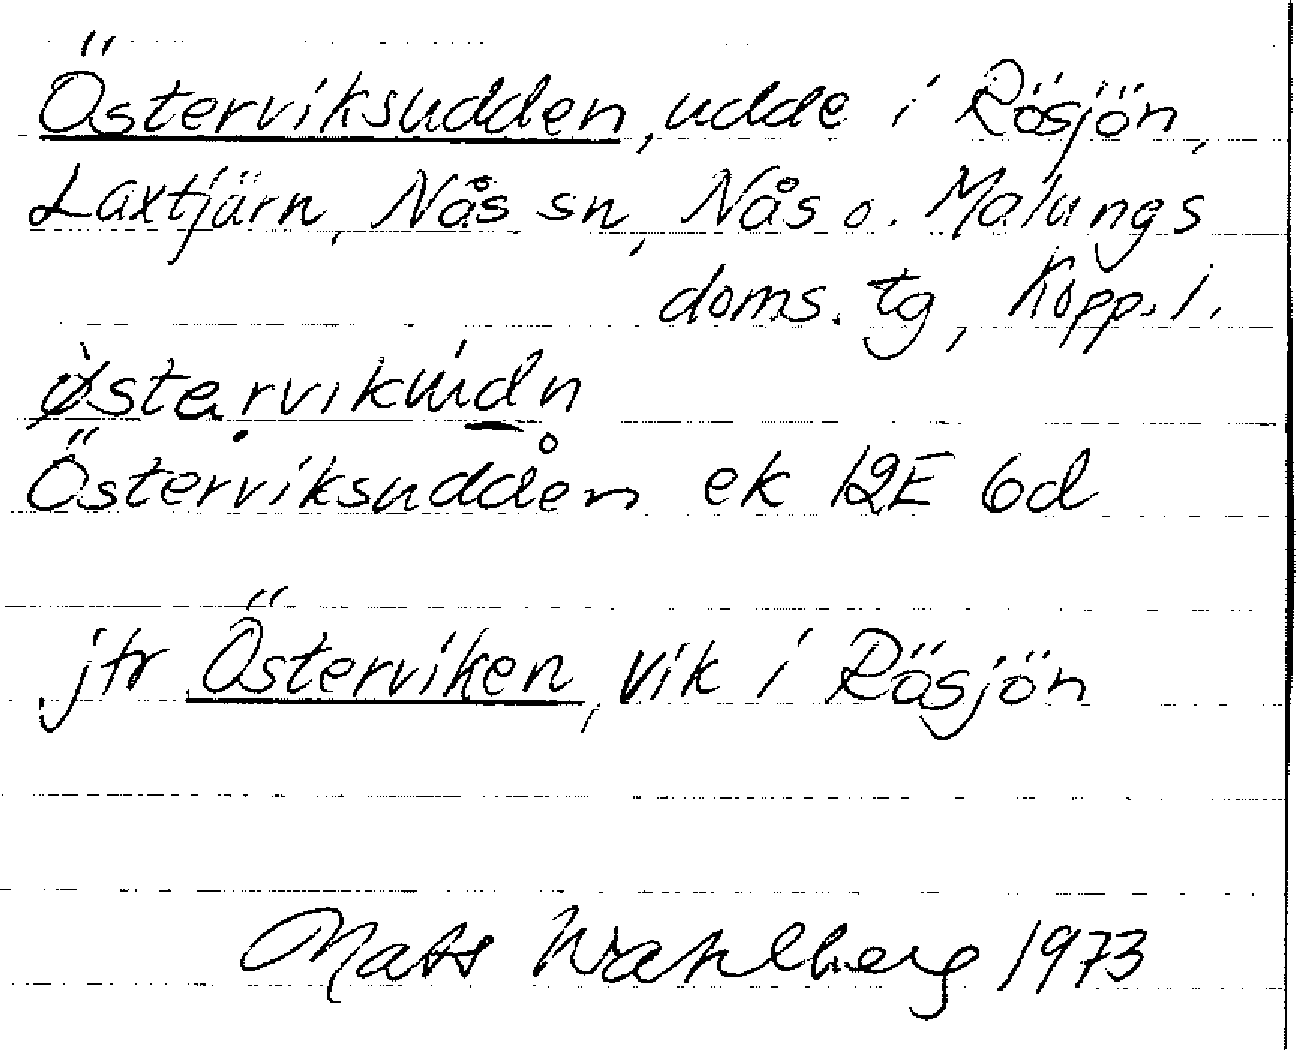 Österviksudden, udde i Rösjön,
Laxtjärn, Nås sn, Nås o. Malungs
doms. tg, Kopp. l.
Österviksudden ek 12E 6d
jfr Österviken, vik i Rösjön
Mats Wahlberg 1973